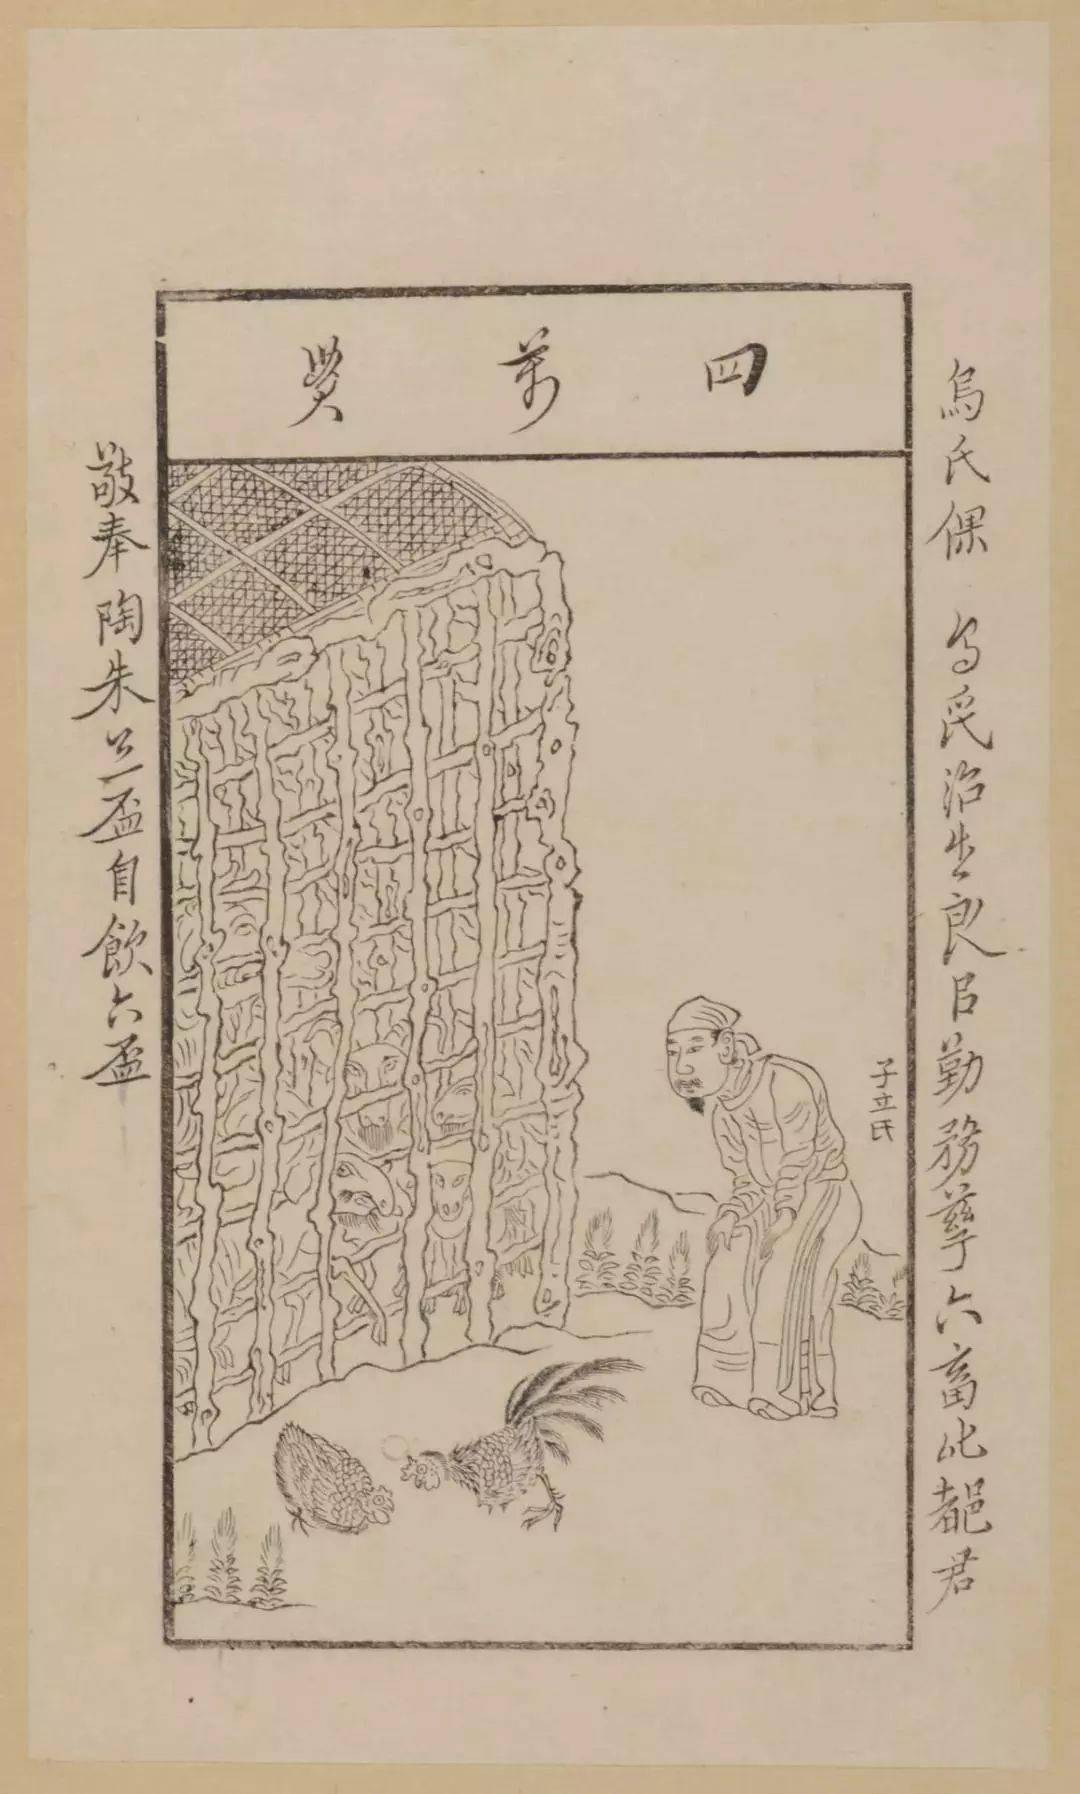 四萬貫
烏氏倮 烏氏治生良㠯勤務孳六畜比都君
子立氏
敬奉陶朱公一盃自飲六盃